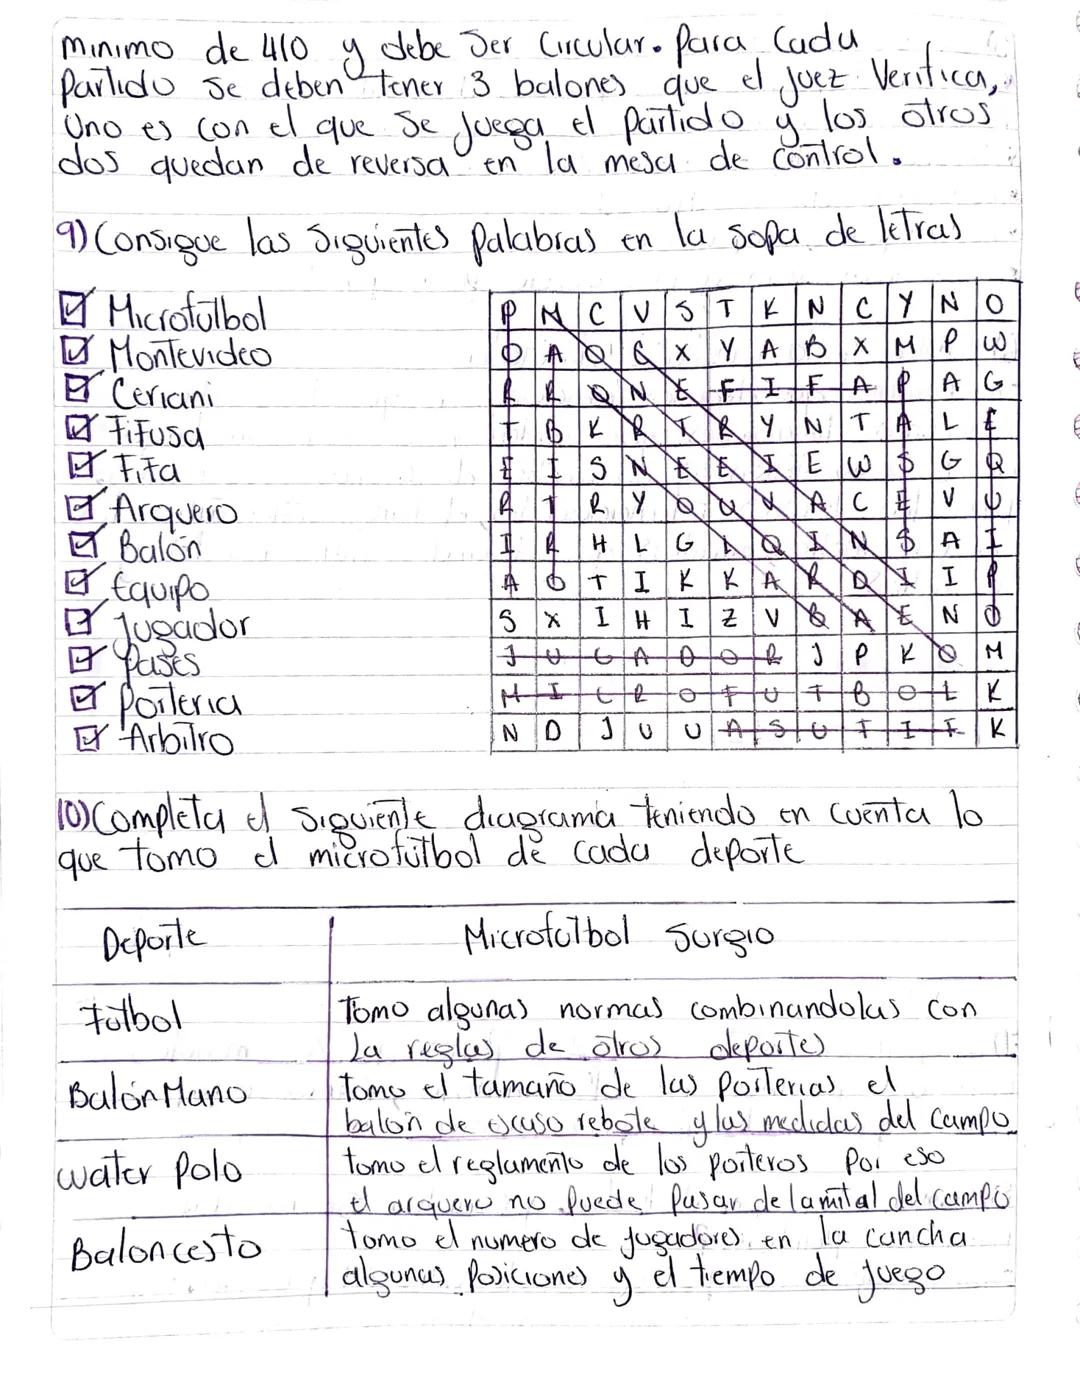 minimo de 410 y debe ser circular. Para Cada
Partido se deben tener 3 balones que el juez Verifica,
Uno es con el que se juega el partido y los otros
dos quedan de reversa en la mesa de control.
9) Consigue las siguientes palabras en la sopa de letras
Microfutbol
Montevideo
Ceriani
Fifusa
Fifa
Arquero
Balón
Equipo
Jugador
Pases
Porteria
Arbitro
P M C V S T K N C Y N O
O A O C X Y A B X M P W
R R O N E F I F A P A G
T B K R T R Y N T A L E
E I S N E E I E W S G Q
R T R Y O U V A C E V U
I R H L G L Q I N S A I
A O T I K K A R D I I P
S X I H I Z V B A E N O
J U G A D O R J P K O M
M I C R O F U T B O L K
N D J U U A S U F I F K
10) Completa el siguiente diagrama teniendo en cuenta lo
que tomo el microfutbol de cada deporte
Deporte Microfutbol Surgio
Futbol Tomo algunas normas combinandolas con
La reglas de otros deportes
Balón Mano tomo el tamaño de las porterias el
balón de escaso rebote y las medidas del campo
water polo tomo el reglamento de los porteros por eso
el arquero no puede pasar de la mital del campo
Baloncesto tomo el numero de jugadores en la cancha
algunas posiciones y el tiempo de juego